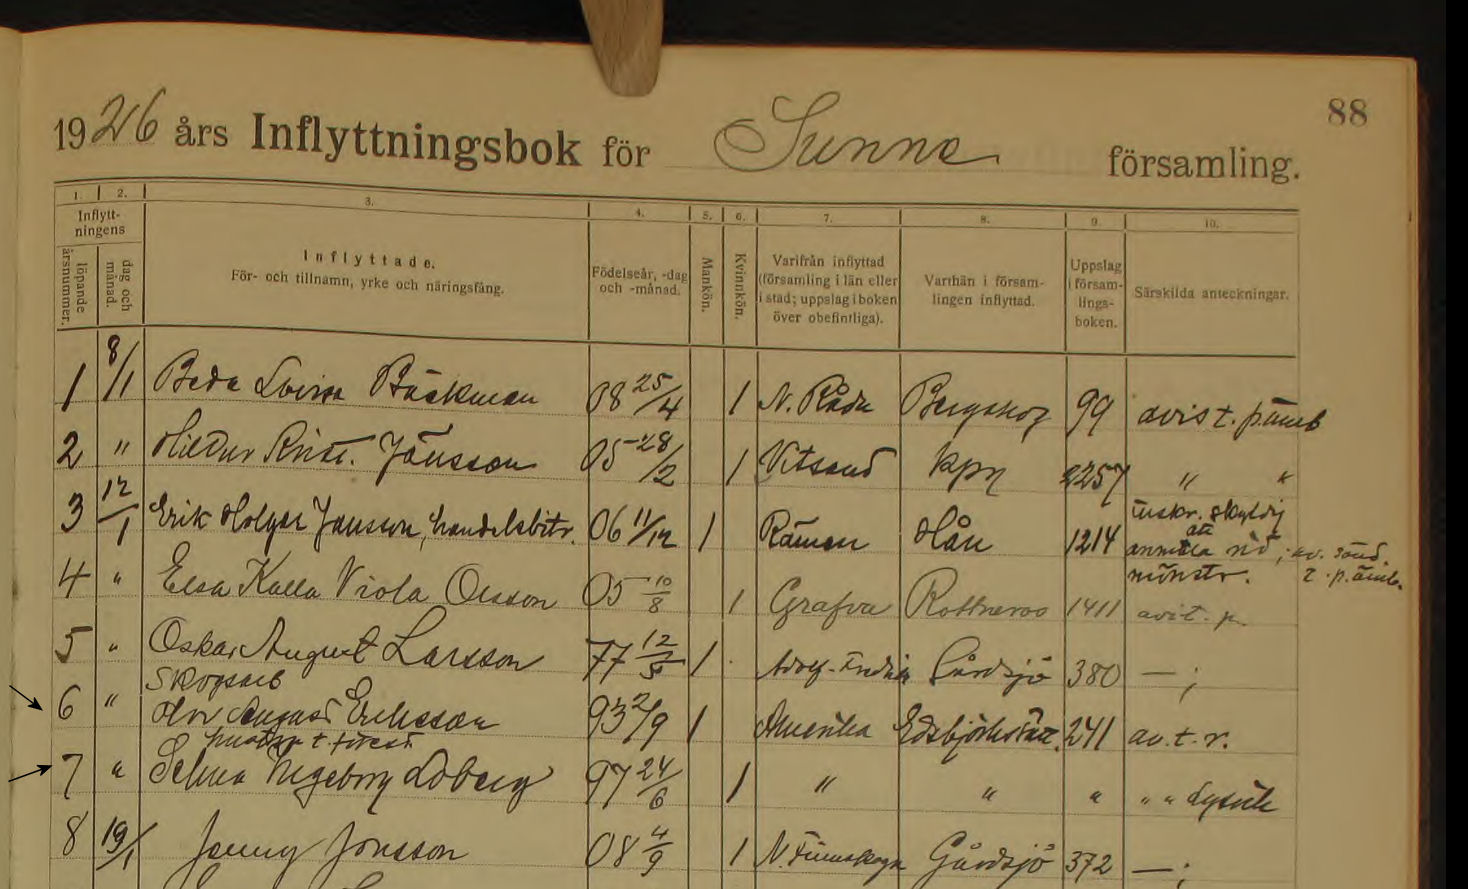 88
1926 års Inflyttningsbok för Sunne församling.
1. 2. 3. 4. 5. 6. 7. 8. 9. 10.
Inflytt-
ningens
löpande
årsnummer.
dag och
månad.
Inflyttade.
För- och tillnamn, yrke och näringsfång.
Födelseår, -dag
och -månad.
Mankön.
Kvinnkön.
Varifrån inflyttad
(församling i län eller
i stad; uppslag i boken
över obefintliga).
Varthän i försam-
lingen inflyttad.
Uppslag
i försam-
lings-
boken.
Särskilda anteckningar.
1 8/1 Beda Lovisa Bäckman 08 25/4 1 N. Råda Bergskog 99 avis t. p. ämb
2 " Hildur Krist. Jönsson 05 28/2 1 Vitsand kpn 2257 " "
3 12/1 Erik Holger Jansson, handelsbitr. 06 11/12 1 Rämen Hån 1214 inskr. skyldig
att
anmäla sid
mönstr. t. p. ämb.
4 " Elsa Kalla Viola Olsson 05 10/8 1 Grafva Rottneros 1411 avit. p.
5 " Oskar August Larsson 77 12/5 1 Adolf-Fredrik Gårdsjö 380 — ;
Skogsarb
6 " Olov August Eriksson 93 2/9 1 Amerika 241 av. t. r.
hustru t. föreg.
7 " Selma Ingeborg 97 24/6 1 " " " " "
8 19/1 Jenny Jonsson 08 4/9 1 N. Finnskoga Gårdsjö 372 — ;